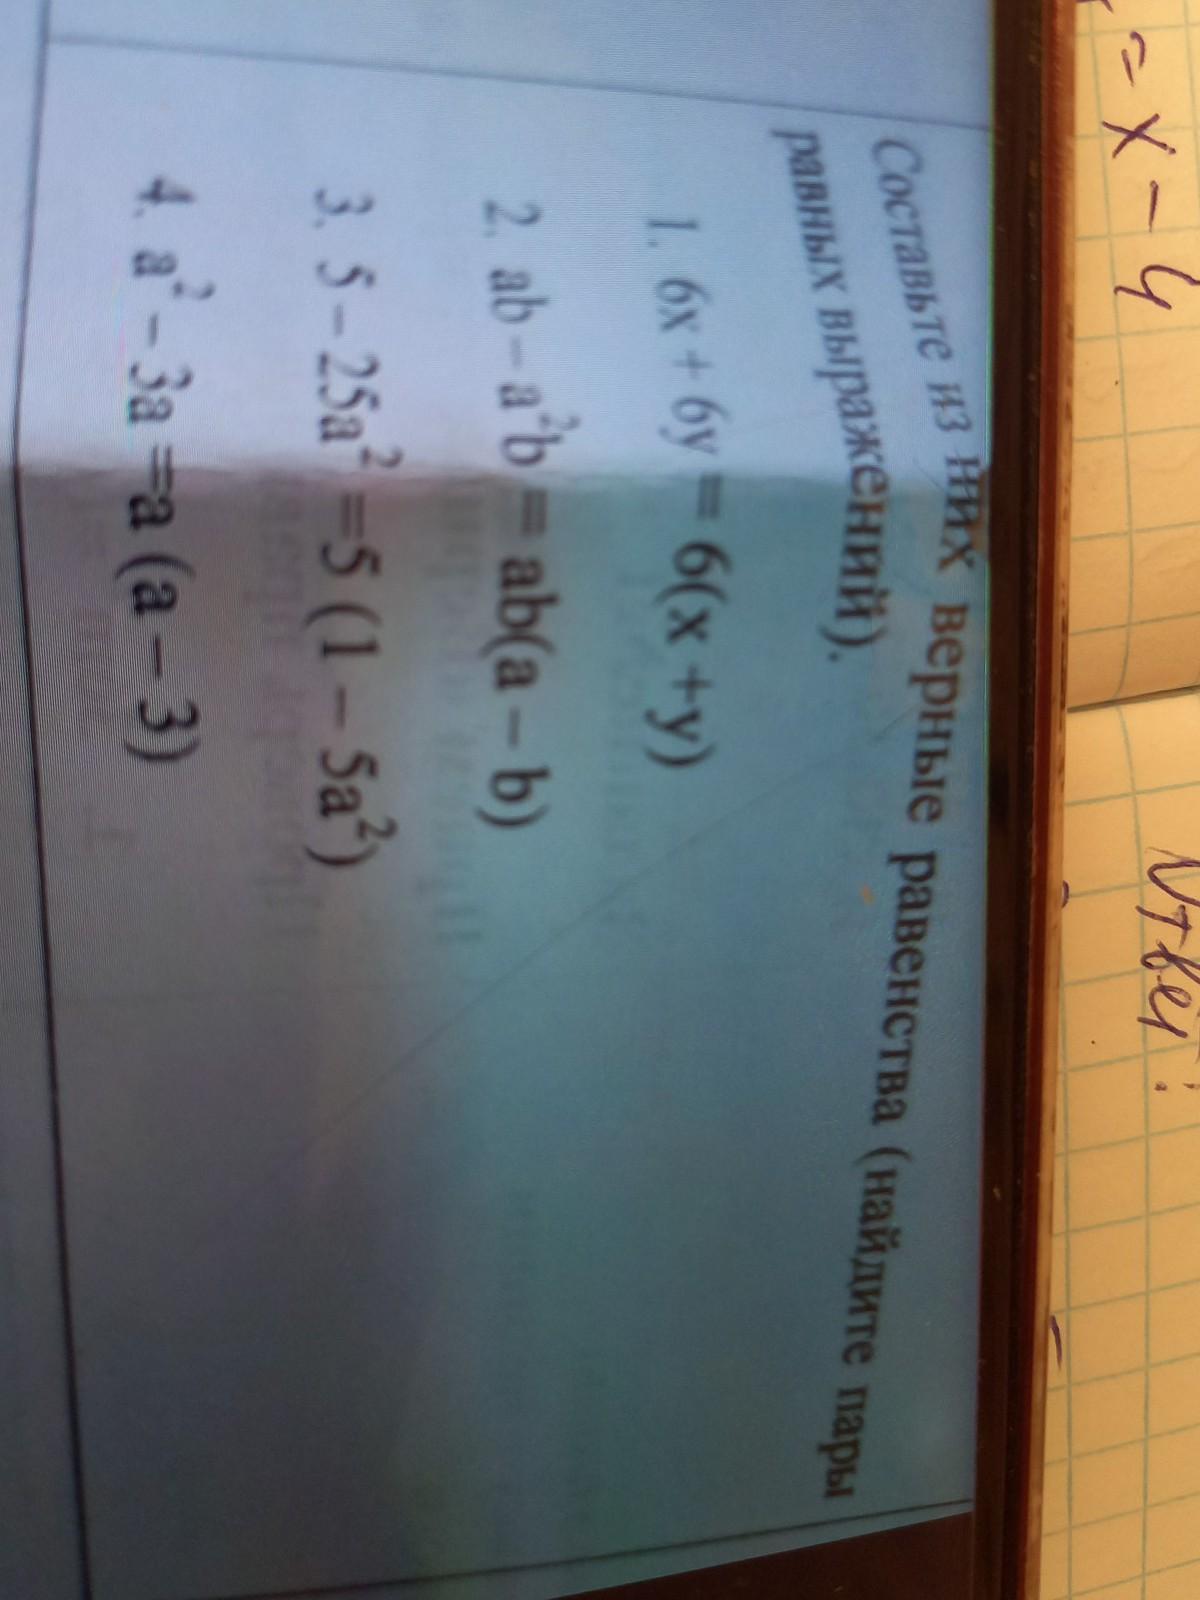 = x - 4
Ответ:
Составьте из них верные равенства (найдите пары
равных выражений).
1. 6x + 6y = 6(x +y)
2. ab – a²b = ab(a – b)
3. 5 – 25a² =5 (1 – 5a²)
4. a² – 3a =a (a – 3)